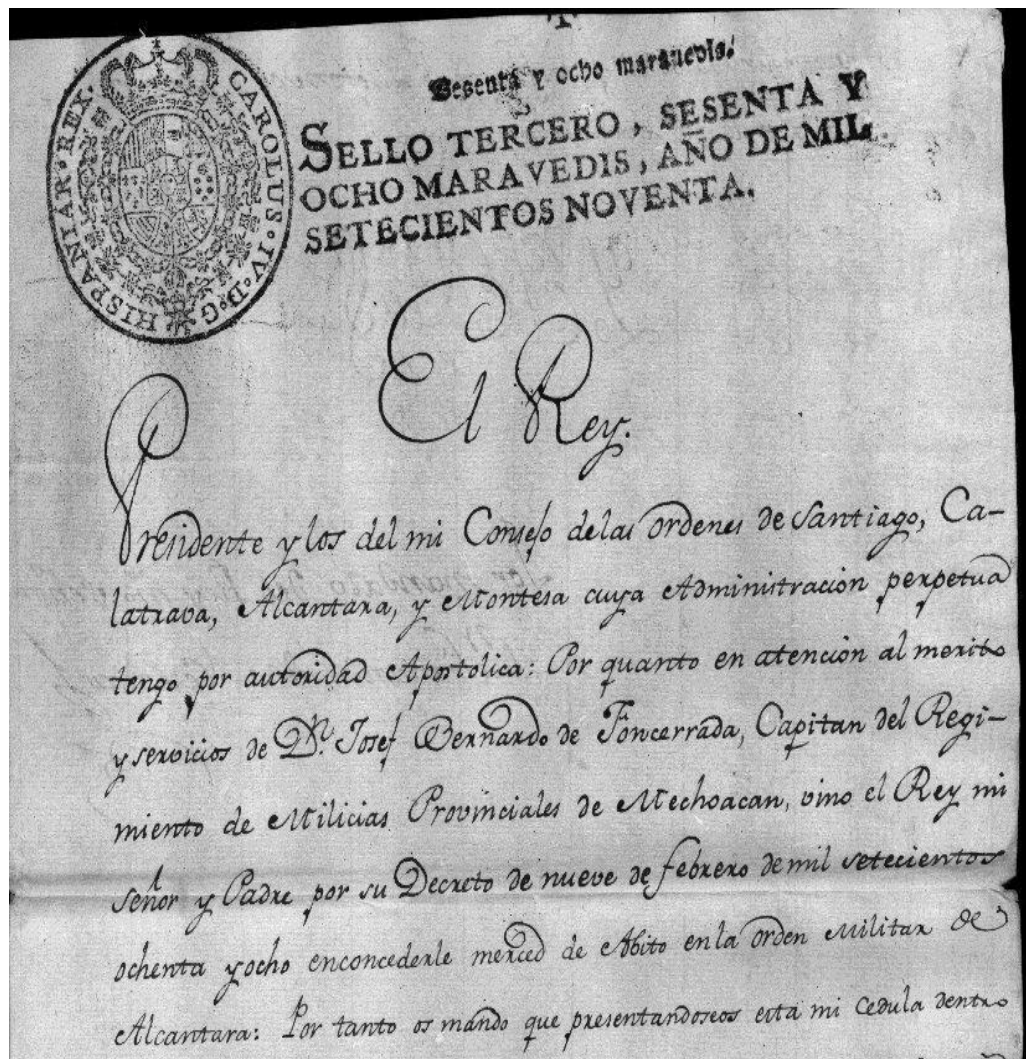 Sesenta y ocho maravedis.
SELLO TERCERO, SESENTA Y
OCHO MARAVEDIS, AÑO DE MIL
SETECIENTOS NOVENTA.
CAROLUS·IV·D·G·HISPANIAR·REX·
El Rey.
Presidente y los del mi Consejo de las ordenes de Santiago, Ca-
latrava, Alcantara, y Montesa cuya Administracion perpetua
tengo por autoridad Apostolica: Por quanto en atencion al merito
y servicios de Dn. Josef Bernardo de Foncerrada, Capitan del Regi-
miento de Milicias Provinciales de Mechoacan, vino el Rey mi
señor y Padre por su Decreto de nueve de febrero de mil setecientos
ochenta y ocho enconcederle merced de Abito en la orden Militar de
Alcantara: Por tanto os mando que presentandoseos esta mi Cedula dentro